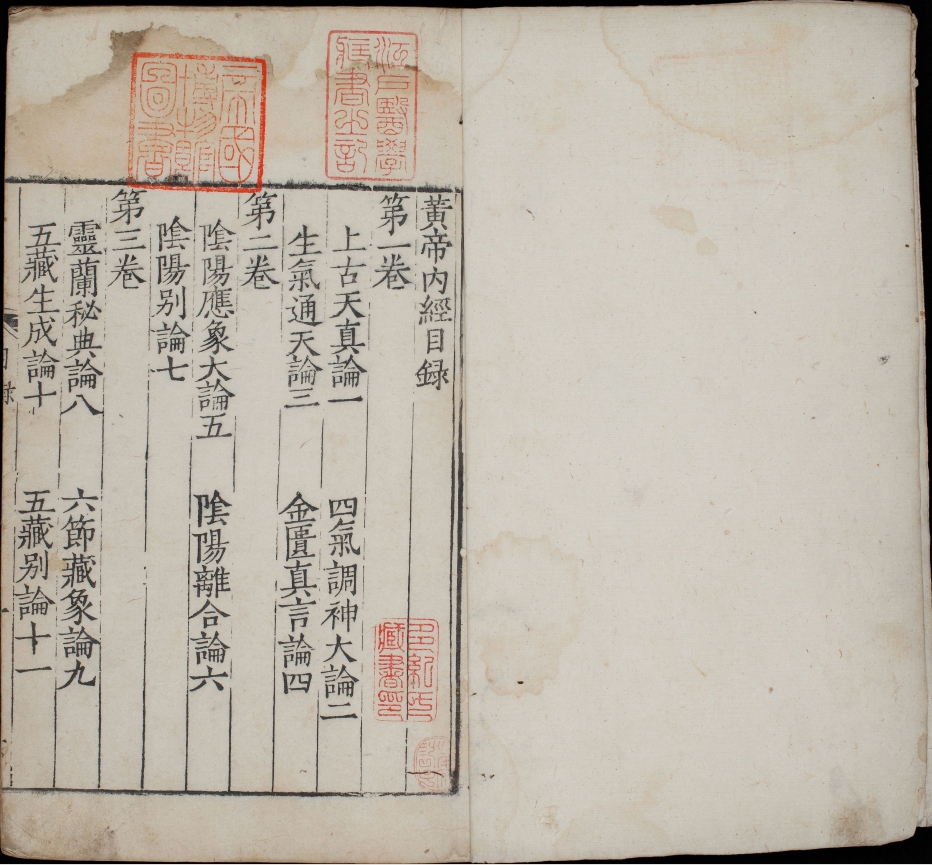 黃帝內經目録
第一卷
上古天真論一 四氣調神大論二
生氣通天論三 金匱真言論四
第二卷
陰陽應象大論五 陰陽離合論六
陰陽別論七
第三卷
靈蘭秘典論八 六節藏象論九
五藏生成論十 五藏別論十一
江戸醫學
藏書之記
帝國
博物館
圖書
藏書印